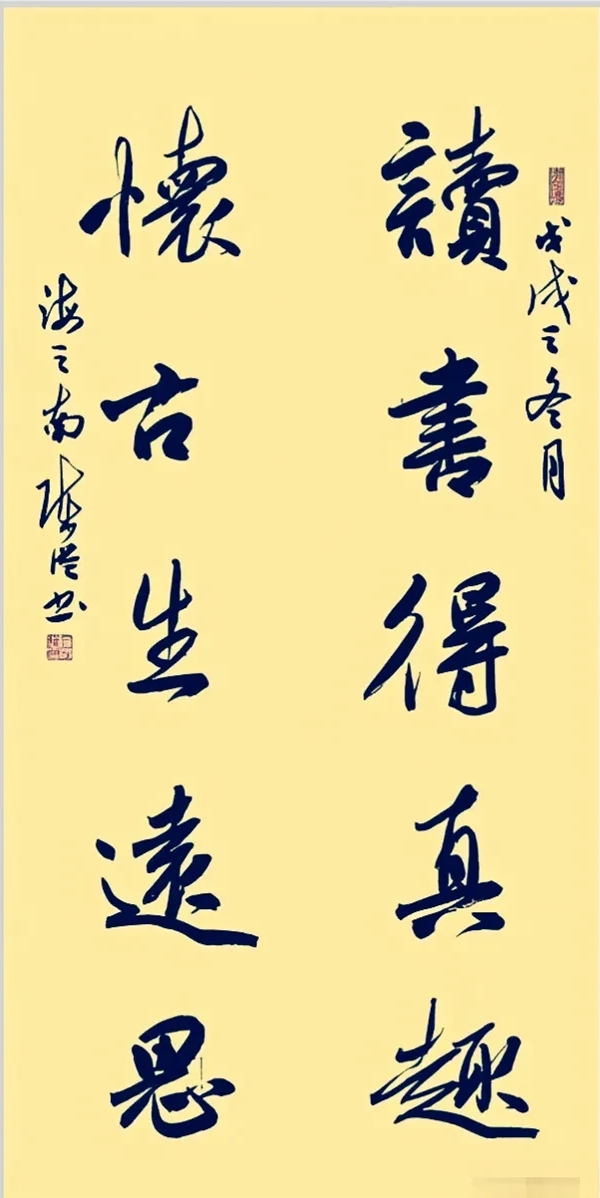 戊戌之冬月
讀書得真趣
懷古生遠思
海之南陳恩書